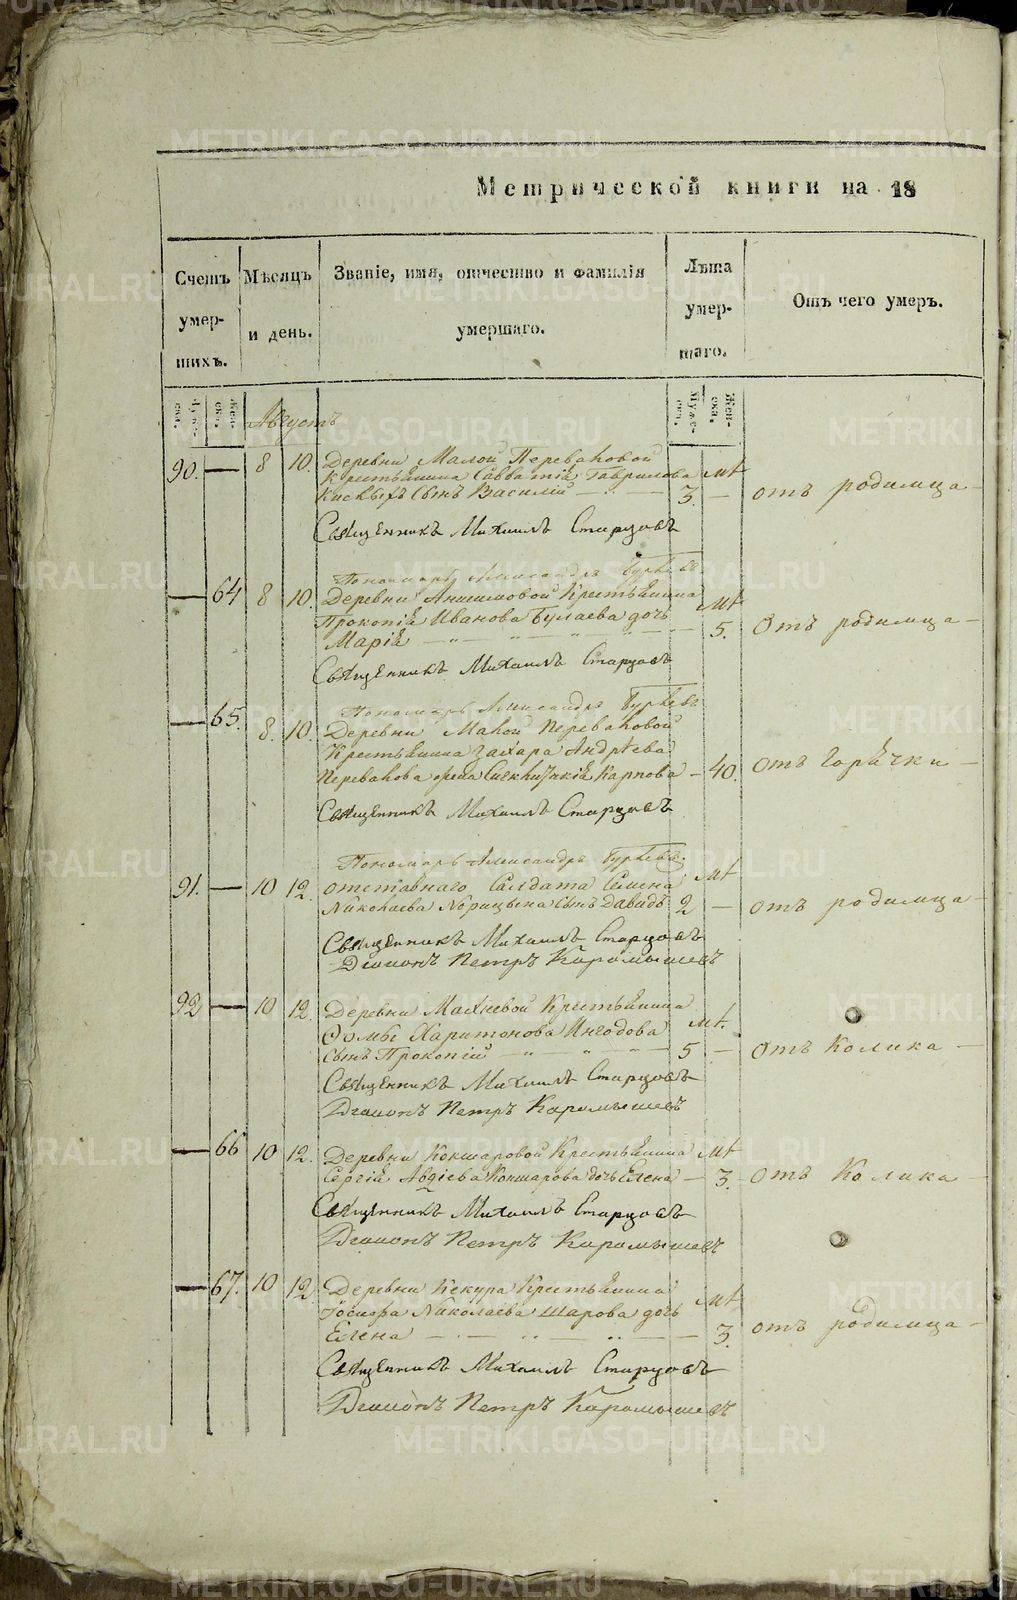 Метрической книги на 18
Счетъ умер- шихъ.
Мѣсяцъ и день.
Званіе, имя, отчество и фамилія умершаго.
Лѣта умер- шаго.
Отъ чего умеръ.
Муже- ска.
Жен- ска.
Муже- ска.
Жен- ска.
Августъ
90. — 8 10. Деревни Малой Переваловой
Крестьянина Савватія Гаврилова мт
сынъ Василій — 3. — отъ родимца —
Священникъ Михаилъ Старцовъ
Пономарь Александръ Гурьевъ
— 64 8 10. Деревни Анисимовой Крестьянина
Прокопія Иванова Булаева дочь мт
Марія — „ — „ — 5. Отъ родимца —
Священникъ Михаилъ Старцовъ
Пономарь Александръ Гурьевъ
— 65. 8. 10. Деревни Малой Переваловой
Крестьянина Захара Андрѣева
Перевалова жена Карпова — 40. отъ Горячки —
Священникъ Михаилъ Старцовъ
Пономарь Александръ Гурьевъ
91. — 10 12. отставнаго Салдата Семена мт
Николаева сынъ Давидъ 2 — отъ родимца —
Священникъ Михаилъ Старцовъ
Діаконъ Петръ Карамышевъ
92 — 10 12. Деревни Махневой Крестьянина
Ѳомы Харитонова Ингодова мт.
сынъ Прокопій — „ — „ — 5 — отъ Колика —
Священникъ Михаилъ Старцовъ
Діаконъ Петръ Карамышевъ
— 66 10 12. Деревни Кокшаровой Крестьянина мт
Сергія Авдіева Кокшарова дочь Елена — 3. отъ Колика —
Священникъ Михаилъ Старцовъ
Діаконъ Петръ Карамышевъ
— 67. 10 12 Деревни Кекура Крестьянина
Іосифа Николаева Шарова дочь мт
Елена — „ — „ — 3. отъ родимца —
Священникъ Михаилъ Старцовъ
Діаконъ Петръ Карамышевъ
METRIKI.GASO-URAL.RU